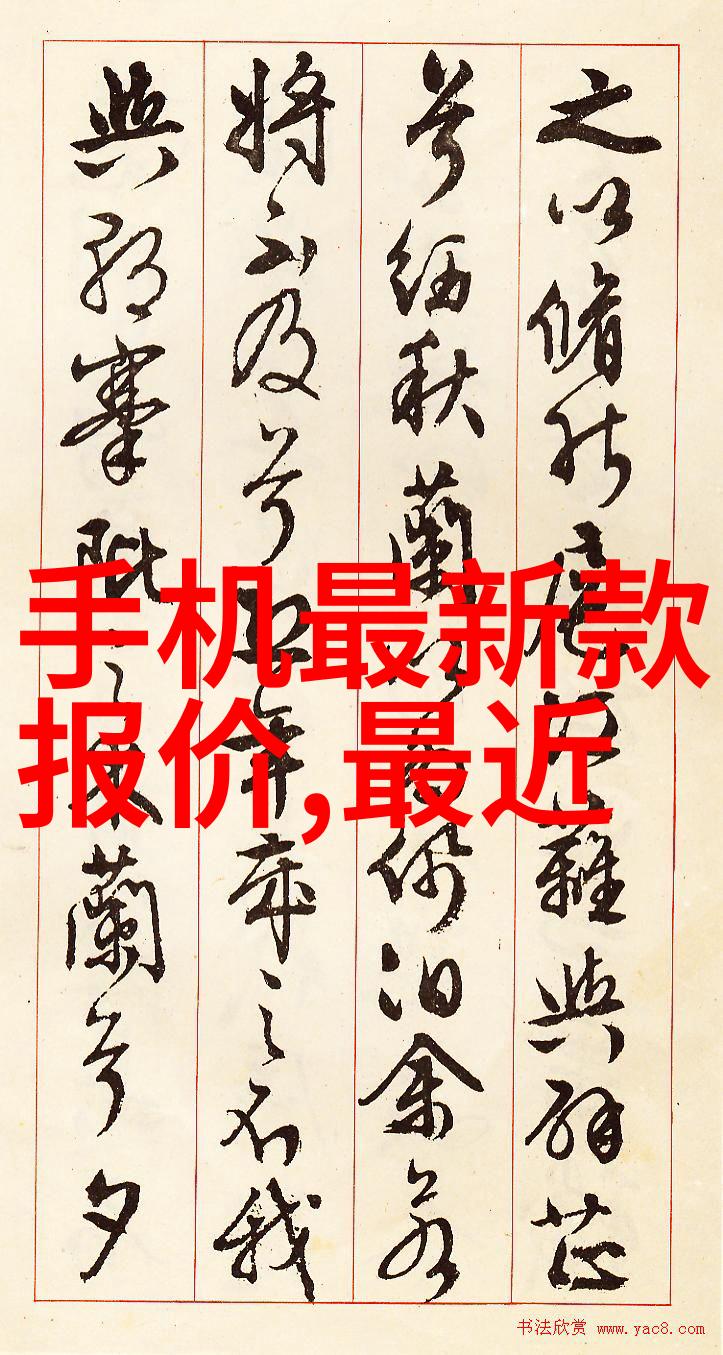 之以脩能扈江離與辟芷
兮紉秋蘭以為佩汩余若
將不及兮恐年歲之不我
與朝搴阰之木蘭兮夕
手机最新款
报价,最近
书法欣赏 www.yac8.com